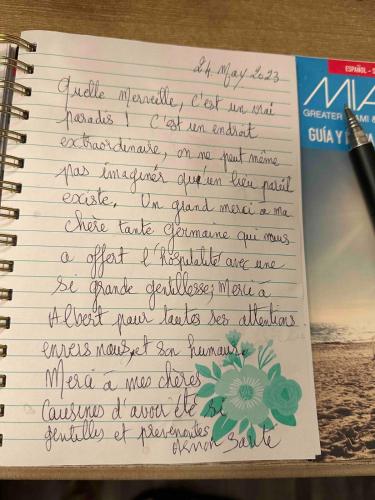 24 May 2023
Quelle merveille, c'est un vrai
paradis ! C'est un endroit
extraordinaire, on ne peut même
pas imaginer qu'un lieu pareil
existe. Un grand merci a ma
chère tante Germaine qui nous
a offert l'hospitalité avec une
si grande gentillesse, Merci à
Albert pour toutes ses attentions
envers nous, et son humour.
Merci à mes chères
Cousines d'avoir été si
gentilles et prévenantes
Santé
ESPAÑOL - 
MIA
GREATER MI &
GUÍA Y